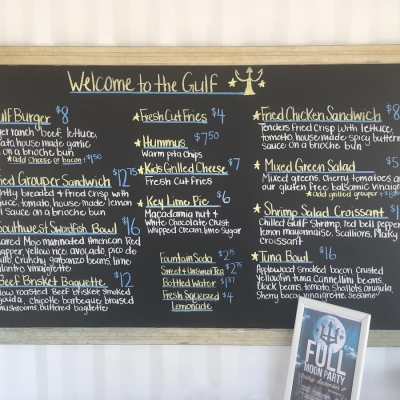 Welcome to the Gulf
Gulf Burger $8
ranch beef, lettuce,
tomato, house made garlic
on a brioche bun
*add Cheese or bacon $1.50
Fried Grouper Sandwich $12.75
lightly breaded & fried Crisp with
lettuce, tomato, house made lemon
sauce on a brioche bun
Southwest Swordfish Bowl $16
American Red
Snapper, yellow rice, avocado, pico de
gallo, crunchy garbanzo beans, lime
cilantro vinaigrette
Beef Brisket Baguette $12
slow roasted Beef brisket, smoked
gouda, chipotle barbeque, braised
mushrooms, buttered baguette
Fresh Cut Fries $4
Hummus $7.50
Warm pita Chips
Kids Grilled Cheese $7
Fresh Cut Fries
Key Lime Pie $6
Macadamia nut &
White Chocolate Crust
Whipped Cream, lime Sugar
Fountain Soda $2.75
Sweet + Unsweet Tea $2.75
Bottled Water
Fresh Squeezed $4
Lemonade
Fried Chicken Sandwich $8
Tenders Fried Crisp with lettuce,
tomato, house made spicy butter
sauce on a brioche bun
Mixed Green Salad $5
Mixed greens, Cherry tomatoes and
our gluten free balsamic vinaigrette
*add grilled grouper
Shrimp Salad Croissant
Chilled Gulf Shrimp, red bell pepper
lemon mayonnaise, Scallions, Flaky
croissant
Tuna Bowl $16
Applewood smoked bacon Crusted
Yellowfin tuna, Cannellini beans
black beans, tomato, Shallots, arugula,
Sherry bacon vinaigrette, Sesame
FULL
MOON PARTY